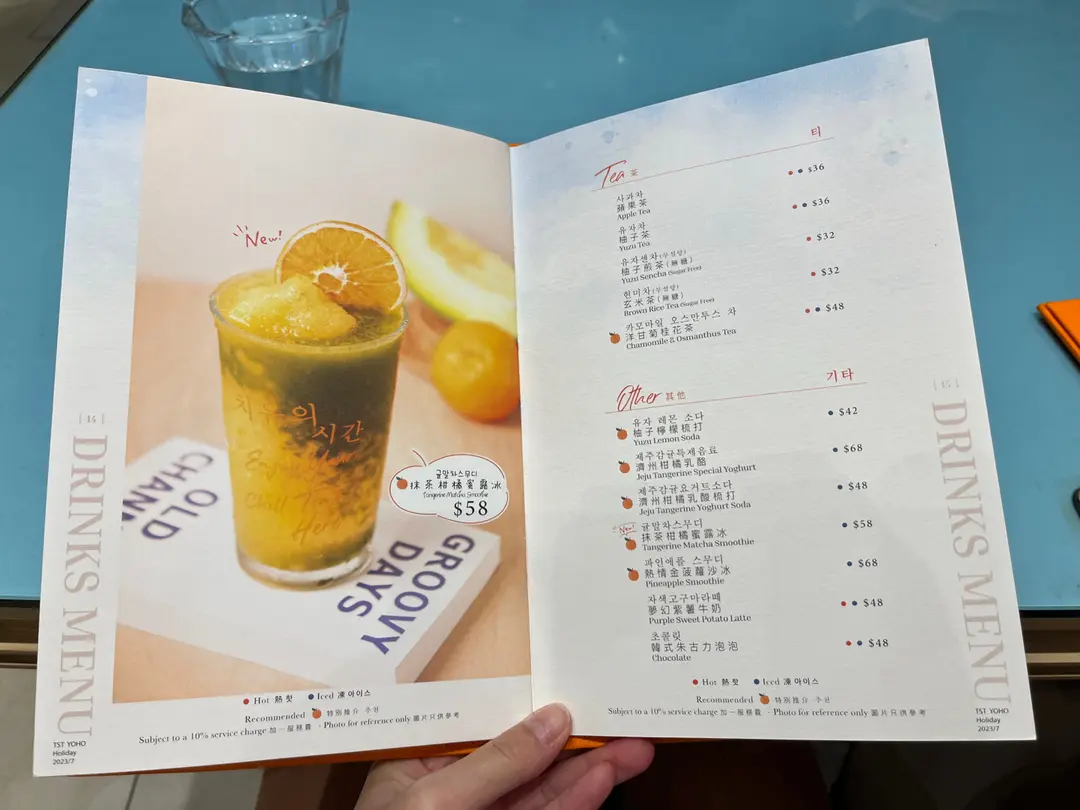 New!
치유의
시간
Chill
Herb
OLD
CHANN
GROOVY
DAYS
귤말차스무디
抹茶柑橘蜜露冰
Tangerine Matcha Smoothie
$58
| 14 |
DRINKS MENU
Hot 熱 핫 Iced 凍 아이스
Recommended 特別推介 추천
Subject to a 10% service charge 加一服務費 · Photo for reference only 圖片只供參考
TST YOHO
Holiday
2023/7
Tea 茶 티
사과차
蘋果茶 $36
Apple Tea
유자차
柚子茶 $36
Yuzu Tea
유자센차(무설탕)
柚子煎茶(無糖) $32
Yuzu Sencha (Sugar Free)
현미차(무설탕)
玄米茶(無糖) $32
Brown Rice Tea (Sugar Free)
카모마일 오스만투스 차
洋甘菊桂花茶 $48
Chamomile & Osmanthus Tea
Other 其他 기타
유자 레몬 소다
柚子檸檬梳打 $42
Yuzu Lemon Soda
제주감귤특제음료
濟州柑橘乳酪 $68
Jeju Tangerine Special Yoghurt
제주감귤요거트소다
濟州柑橘乳酸梳打 $48
Jeju Tangerine Yoghurt Soda
New!
귤말차스무디
抹茶柑橘蜜露冰 $58
Tangerine Matcha Smoothie
파인애플 스무디
熱情金菠蘿沙冰 $68
Pineapple Smoothie
자색고구마라떼
夢幻紫薯牛奶 $48
Purple Sweet Potato Latte
초콜릿
韓式朱古力泡泡 $48
Chocolate
Hot 熱 핫 Iced 凍 아이스
Recommended 特別推介 추천
Subject to a 10% service charge 加一服務費 · Photo for reference only 圖片只供參考
| 15 |
DRINKS MENU
TST YOHO
Holiday
2023/7